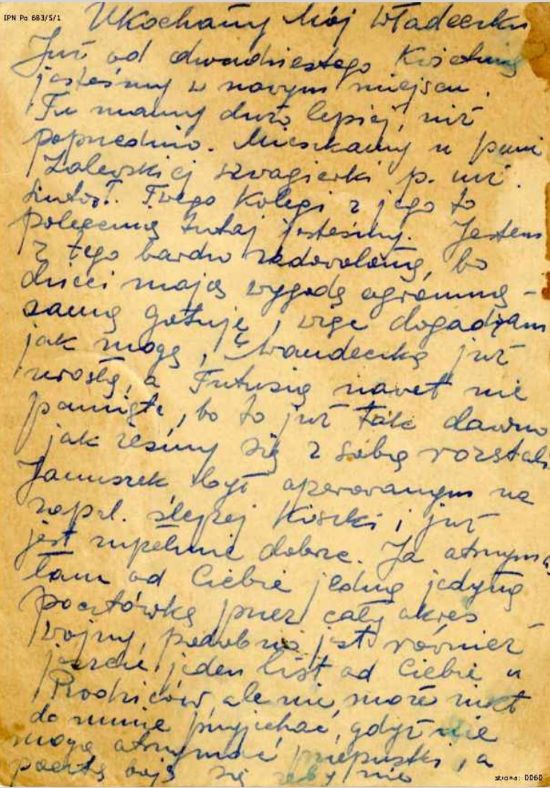 IPN Po 683/5/1
Ukochany Mój Władeczku
Już od dwudziestego Kwietnia
jesteśmy w nowym miejscu.
Tu mamy dużo lepiej, niż
poprzednio. Mieszkamy u pani
Zalewskiej szwagierki p. inż.
Twego Kolegi z jego to
polecenia tutaj jesteśmy. Jestem
z tego bardzo zadowolona, bo
dzieci mają wygodę ogromną -
sama gotuję, więc dogadzam
jak mogę, Wandeczka już
urosła, a Tatusia nawet nie
pamięta, bo to już tak dawno
jak żeśmy się z sobą rozstali
Januszek był operowanym na
zapal. ślepej Kiszki, i już
jest zupełnie dobrze. Ja otrzyma
łam od Ciebie jedną jedyną
pocztówkę przez cały okres
wojny, podobno jest również
jeszcze jeden list od Ciebie u
Rodziców, ale nie może nikt
do mnie przyjechać, gdyż nie
mogą otrzymać przepustki, a
pocztą boją się żeby nie
strona: 0060